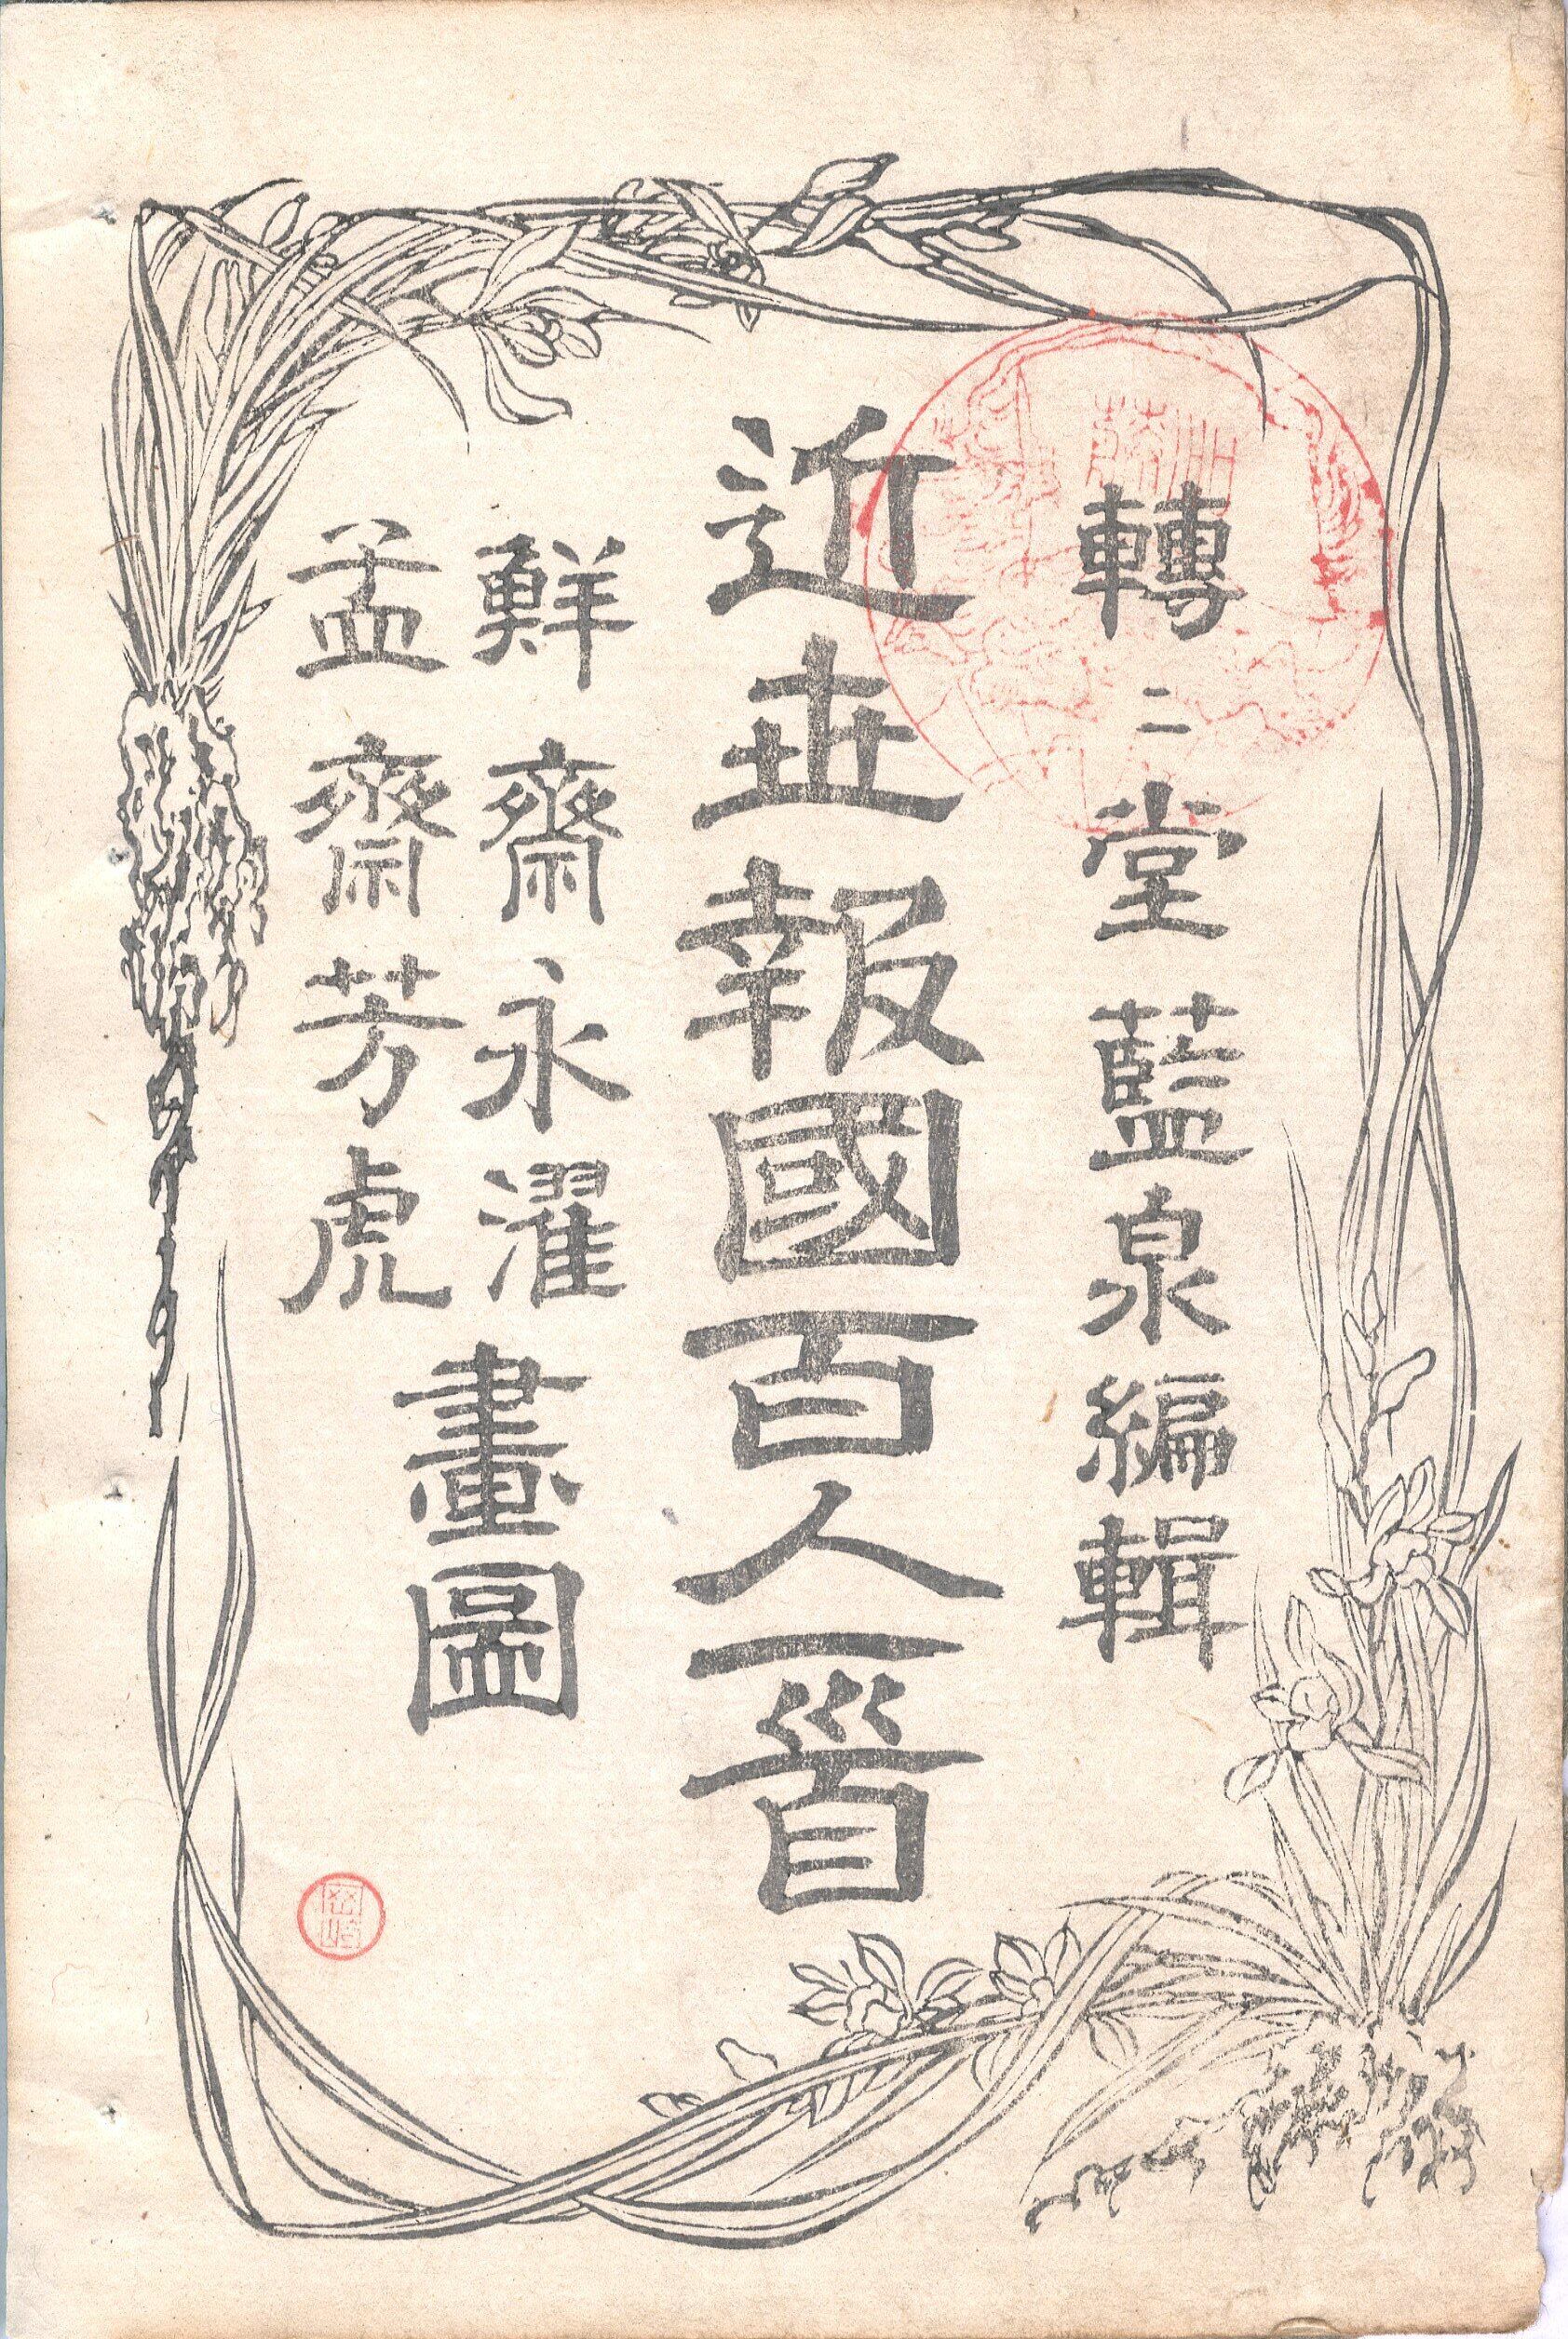 轉々堂藍泉編輯
近世報國百人一首
鮮齋永濯
孟齋芳虎
畫圖
岡崎